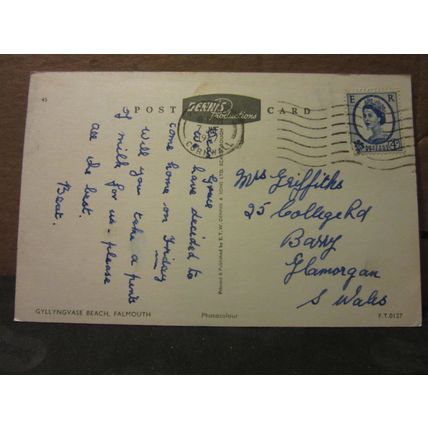 45
POST CARD
DENNIS
Productions
E R
POSTAGE
CORNWALL
Dear Grace
We have decided to
come home on Friday
will you take a pint
of milk for us - please
all the best.
Beat.
Mrs Griffiths
25 College Rd
Barry
Glamorgan
S Wales
Printed & Published by E.T.W. DENNIS & SONS LTD., SCARBOROUGH
GYLLYNGVASE BEACH, FALMOUTH
Photocolour
F.T.0127